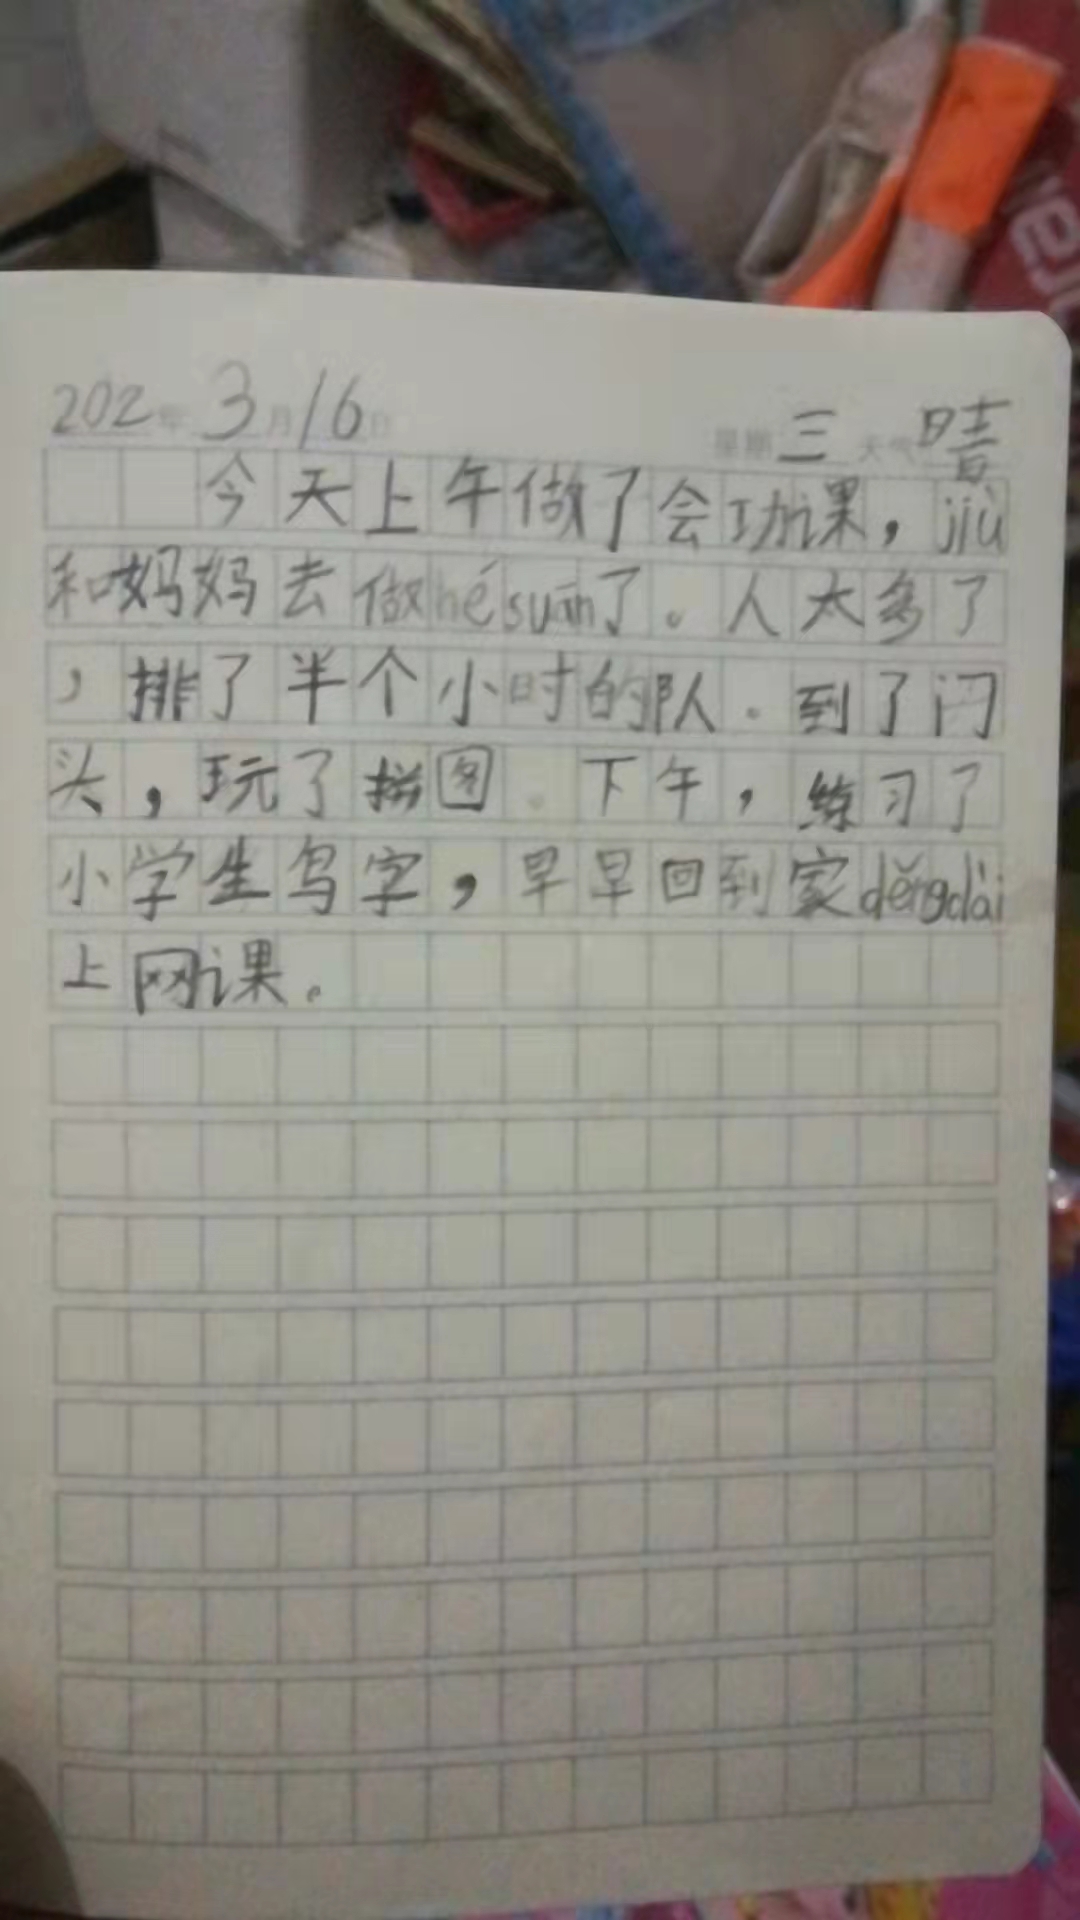 202年3月16日 星期三 天气晴
今天上午做了会功课，jiù
和妈妈去做hésuān了。人太多了
，排了半个小时的队。到了门
头，玩了拼图。下午，练习了
小学生写字，早早回到家děngdài
上网课。